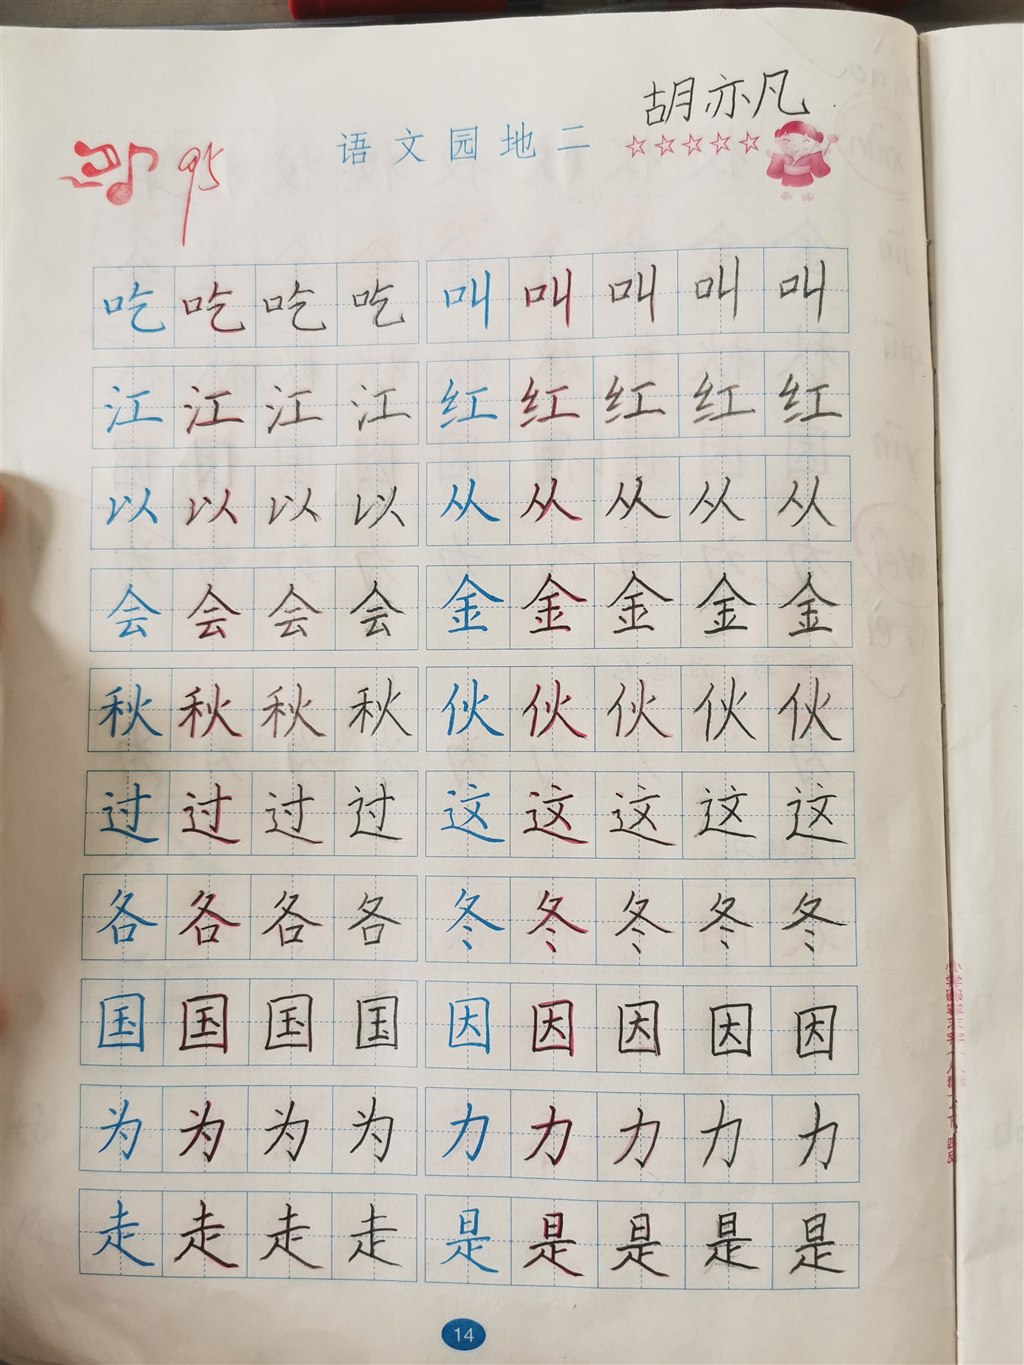 胡亦凡
语文园地二
95
吃吃吃吃叫叫叫叫叫
江江江江红红红红红
以以以以从从从从从
会会会会金金金金金
秋秋秋秋伙伙伙伙伙
过过过过这这这这这
各各各各冬冬冬冬冬
国国国国因因因因因
为为为为力力力力力
走走走走是是是是是
14